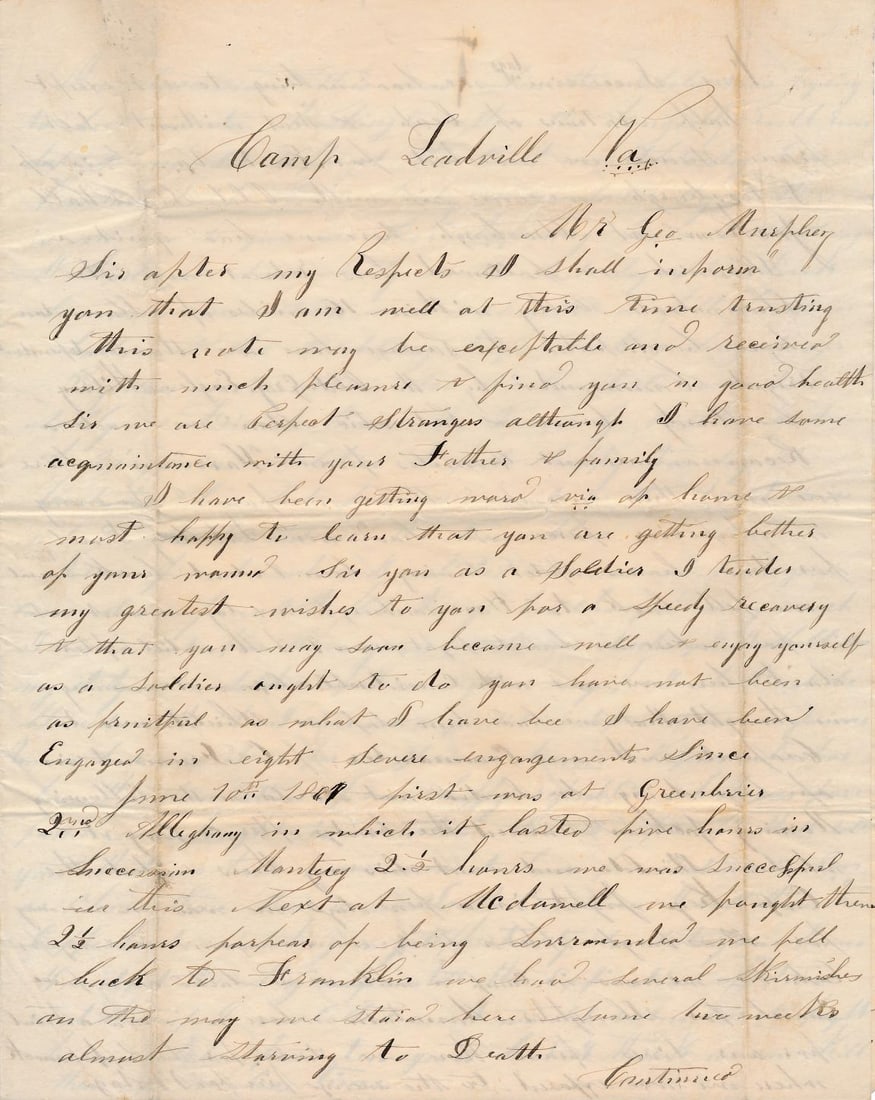 Camp Leadville Va
Mr Geo Murphey
Sir after my Respects I shall inform
you that I am well at this time trusting
this note may be exceptable and received
with much pleasure & find you in good health
Sir we are Perfect Strangers although I have some
acquaintance with your Father & family
I have been getting word via of home &
most happy to learn that you are getting bether
of your wound Sir you as a Soldier I tender
my greatest wishes to you for a speedy recovery
& that you may soon become well & enjoy yourself
as a soldier ought to do you have not been
as fruitful as what I have bee I have been
Engaged in eight severe engagements Since
June 10th 1861 first was at Greenbrier
2nd Alleghany in which it lasted five hours in
Succession Monterey 2 1/2 hours we was successful
in this Next at Mcdowell we fought them
2 1/2 hours forfear of being Surrounded we fell
back to Franklin we had several Skirmishes
on the way we staid here some two weeks
almost starving to Death
Continued